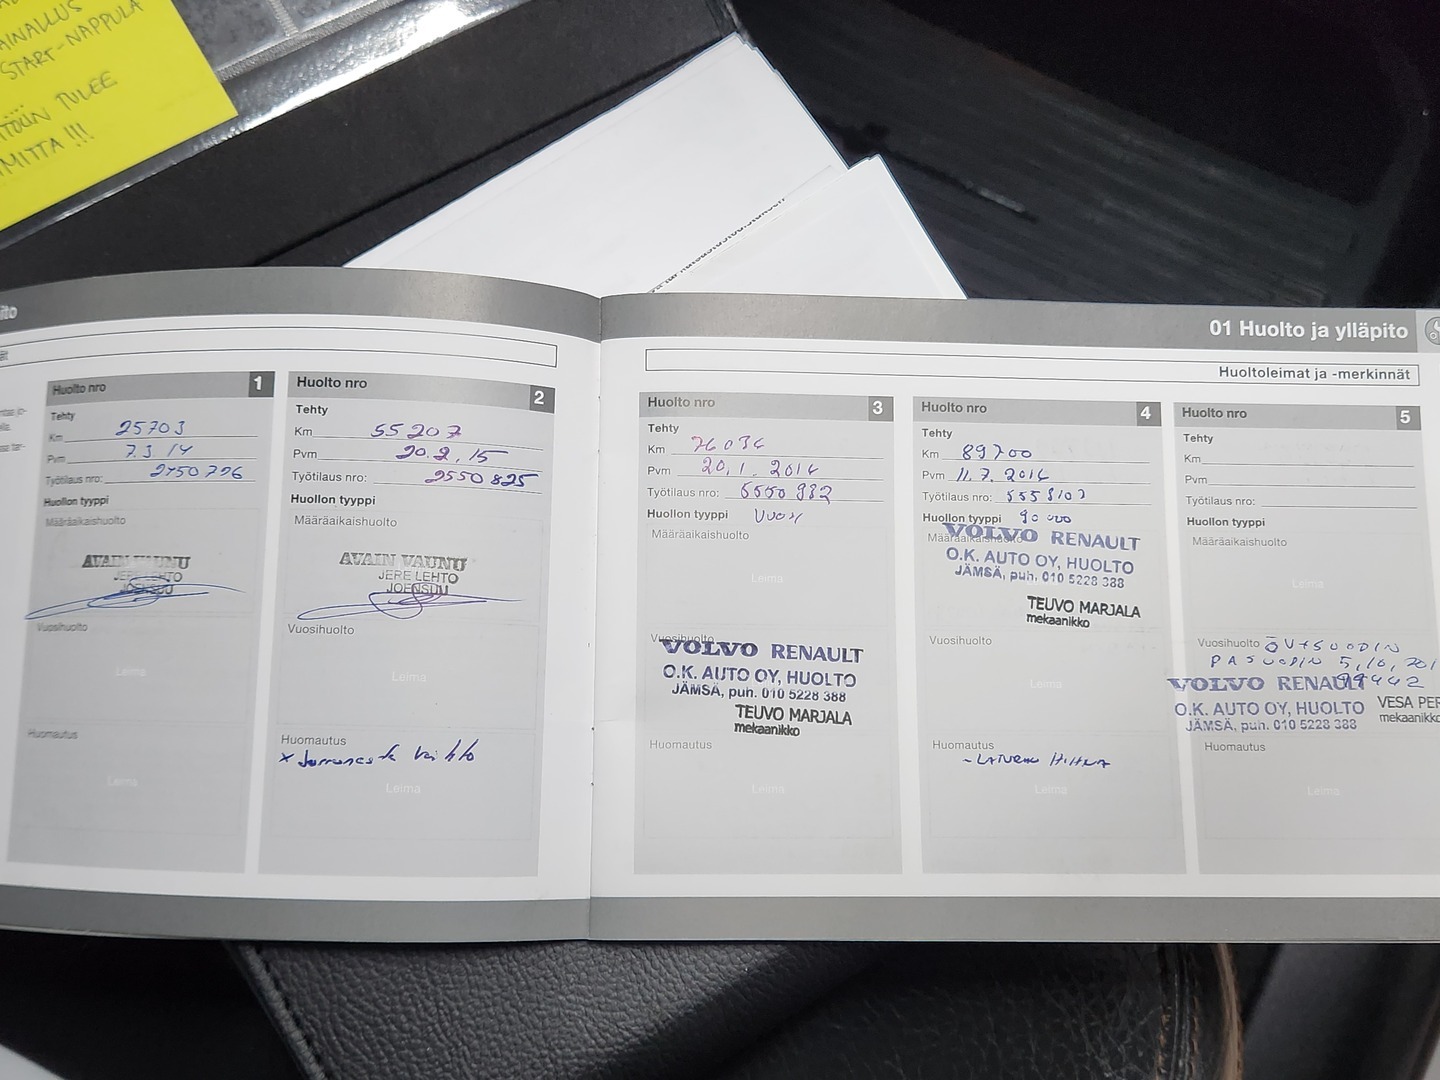 AINALLUS
START-NAPPULA
TULEE
MITTA !!!
01 Huolto ja ylläpito
Huoltoleimat ja -merkinnät
Huolto nro 1
Tehty
Km 25703
Pvm 7.3.14
Työtilaus nro: 2450796
Huollon tyyppi
Määräaikaishuolto
AVAIN VAUNU
JERE LEHTO
JOENSUU
Vuosihuolto
Leima
Huomautus
Leima
Huolto nro 2
Tehty
Km 55207
Pvm 20.2.15
Työtilaus nro: 2550825
Huollon tyyppi
Määräaikaishuolto
AVAIN VAUNU
JERE LEHTO
JOENSUU
Vuosihuolto
Leima
Huomautus
x Jarruneste vaihto
Leima
Huolto nro 3
Tehty
Km 76034
Pvm 20.1.2016
Työtilaus nro:
Huollon tyyppi
Määräaikaishuolto
Leima
Vuosihuolto
VOLVO RENAULT
O.K. AUTO OY, HUOLTO
JÄMSÄ, puh. 010 5228 388
TEUVO MARJALA
mekaanikko
Huomautus
Leima
Huolto nro 4
Tehty
Km 89700
Pvm 11.7.2016
Työtilaus nro:
Huollon tyyppi 90 000
Määräaikaishuolto
VOLVO RENAULT
O.K. AUTO OY, HUOLTO
JÄMSÄ, puh. 010 5228 388
TEUVO MARJALA
mekaanikko
Vuosihuolto
Leima
Huomautus
Leima
Huolto nro 5
Tehty
Km
Pvm
Työtilaus nro:
Huollon tyyppi
Määräaikaishuolto
Leima
Vuosihuolto ÖV+SUODIN
5.10.201
99442
VOLVO RENAULT
O.K. AUTO OY, HUOLTO
JÄMSÄ, puh. 010 5228 388
VESA PER
mekaanikko
Huomautus
Leima